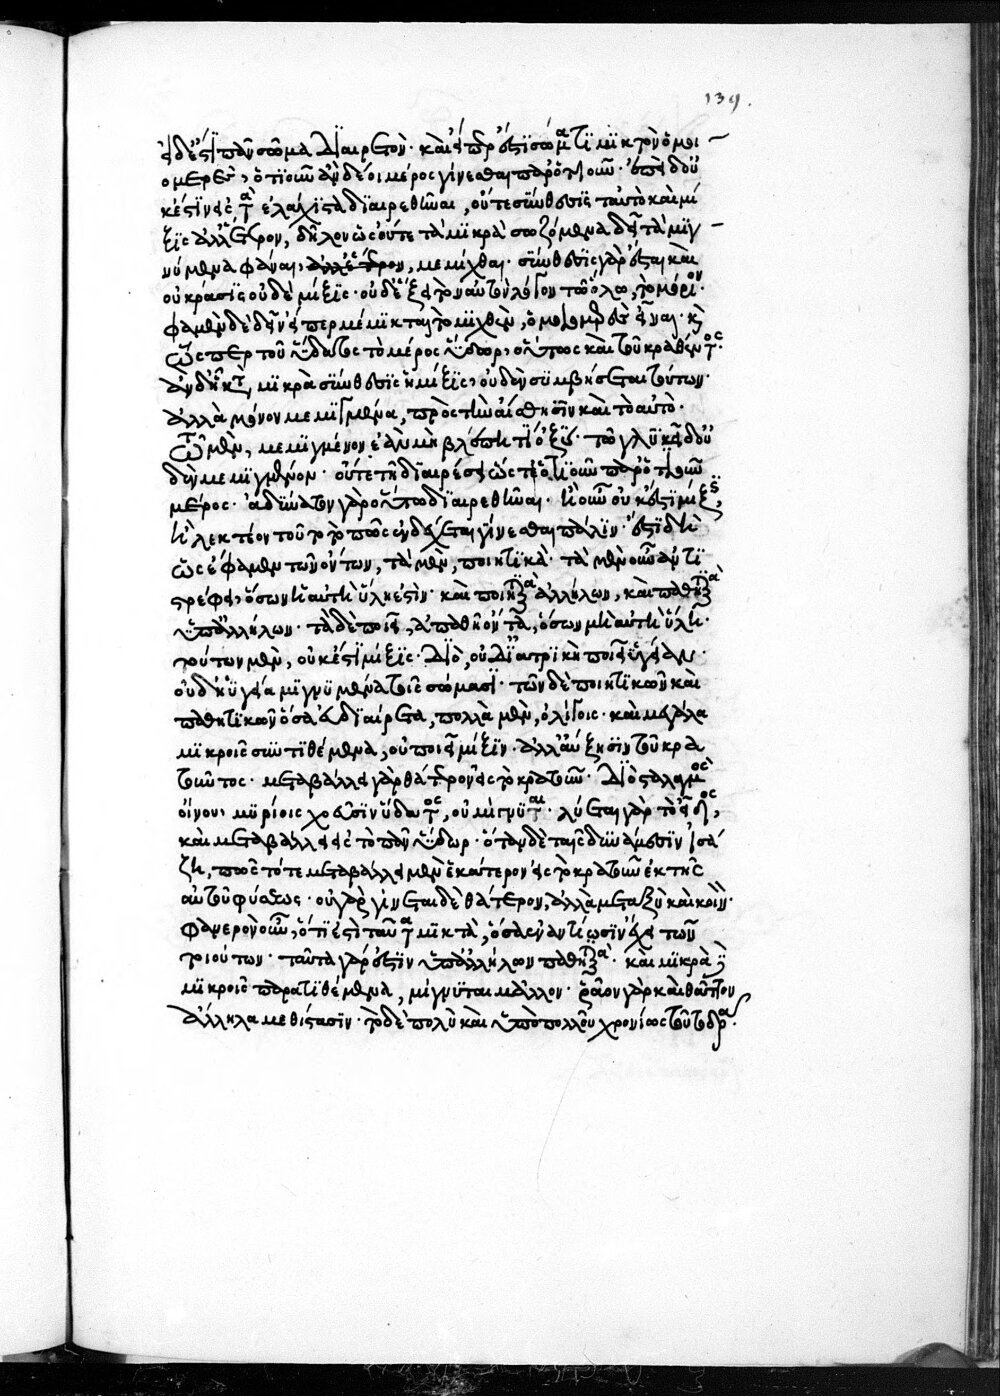 εἰ δ' ἐστὶ πᾶν σῶμα διαιρετὸν· καὶ εἴπερ ἐστὶ σώματι μικτὸν ὁμοι
ομερὲς, ὁτιοῦν ἂν δέοι μέρος γίνεσθαι παρ' ὁτιοῦν· ἐπεὶ δ' οὐ
κ ἔστιν εἰς τὰ ἐλάχιστα διαιρεθῆναι, οὔτε σύνθεσις ταὐτὸ καὶ μί
ξις ἀλλ' ἕτερον, δῆλον ὡς οὔτε τὰ μικρὰ σωζόμενα δεῖ τὰ μιγ
νύμενα φάναι, ἀλλ' ἕτερον, μεμίχθαι· σύνθεσις γὰρ ἔσται καὶ
οὐ κράσις οὐδὲ μίξις· οὐδ' ἕξει τὸν αὐτὸν λόγον τῶ ὅλω, τὸ μόριον·
φαμὲν δὲ δεῖν εἴπερ μέμικται τὸ μιχθὲν, ὁμοιομερὲς εἶναι· κ(αὶ)
ὥσπερ τοῦ ὕδατος τὸ μέρος ὕδωρ, οὕτως καὶ τοῦ κραθέντος·
ἂν δ' ἦ κατὰ μικρὰ σύνθεσις ἡ μίξις, οὐδὲν συμβήσεται τούτων·
ἀλλὰ μόνον μεμιγμένα, πρὸς τὴν αἴσθησιν καὶ τὸ αὐτὸ·
τῶ μὲν, μεμιγμένον ἐὰν μὴ βλέπη τι ὀξὺ· τῶ γλυκεῖ δ' οὐ
δὲν μεμιγμένον· οὔτε τῆ διαιρέσει ὥστε ὁτιοῦν παρ' ὁτιοῦν
μέρος· ἀδύνατον γὰρ οὕτω διαιρεθῆναι· ἢ οὖν οὐκ ἔστι μίξις,
ἢ λεκτέον τοῦτο πῶς ἐνδέχεται γίνεσθαι πάλιν· ἔστι δὴ
ὡς ἔφαμεν τῶν ὄντων, τὰ μὲν, ποιητικὰ· τὰ μὲν οὖν ἀντι
στρέφει, ὅσων ἡ αὐτὴ ὕλη ἐστὶν· καὶ ποιητικὰ ἀλλήλων, καὶ παθητικὰ
ὑπ' ἀλλήλων· τὰ δὲ ποιεῖ, ἀπαθῆ ὄντα, ὅσων μὴ αὐτὴ ὕλη·
τούτων μὲν, οὐκ ἔστι μίξις· διὸ, οὐδ' ἰατρικὴ ποιεῖ ὑγείαν·
οὐδ' ἡ ὑγεία μιγνυμένα τοῖς σώμασι· τῶν δὲ ποιητικῶν καὶ
παθητικῶν ὅσα εὐδιαίρετα, πολλὰ μὲν, ὀλίγοις· καὶ μεγάλα
μικροῖς συντιθέμενα, οὐ ποιεῖ μίξιν· ἀλλ' αὔξησιν τοῦ κρα
τοῦντος· μεταβάλλει γὰρ θάτερον εἰς τὸ κρατοῦν· διὸ σταλαγμὸς
οἴνου, μυρίοις χοεῦσιν ὕδατος, οὐ μίγνυται· λύεται γὰρ τὸ εἶδος,
καὶ μεταβάλλει εἰς τὸ πᾶν ὕδωρ· ὅταν δὲ ταῖς δυνάμεσιν ἰσά
ζη, πως τότε μεταβάλλει μὲν ἑκάτερον εἰς τὸ κρατοῦν ἐκ τῆς
αὐτοῦ φύσεως· οὐ γίνεται δὲ θάτερον, ἀλλὰ μεταξὺ καὶ κοινὸν·
φανερὸν οὖν, ὅτι ἐστὶ ταῦτα μικτὰ, ὅσα ἐναντίωσιν ἔχει τῶν
ποιούντων· ταῦτα γάρ ἐστιν ὑπ' ἀλλήλων παθητικὰ· καὶ μικρὰ δὲ
μικροῖς παρατιθέμενα, μίγνυται μᾶλλον· ῥᾶον γὰρ καὶ θᾶττον
ἄλληλα μεθίστασιν· τὸ δὲ πολὺ καὶ ὑπὸ πολλοῦ χρονίως τοῦτο δρᾶ·